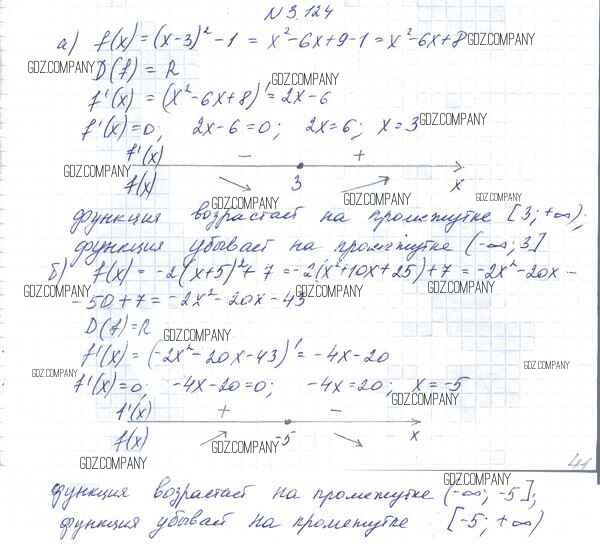 N 3.124
а) f(x) = (x-3)² - 1 = x² - 6x + 9 - 1 = x² - 6x + 8 GDZ.COMPANY
GDZ.COMPANY D(f) = R GDZ.COMPANY
f'(x) = (x² - 6x + 8)' = 2x - 6
f'(x) = 0; 2x - 6 = 0; 2x = 6; x = 3 GDZ.COMPANY
f'(x) - +
GDZ.COMPANY
f(x) ↘ 3 ↗ x
GDZ.COMPANY GDZ.COMPANY GDZ.COMPANY
функция возрастает на промежутке [3; +∞);
функция убывает на промежутке (-∞; 3]
б) f(x) = -2(x+5)² + 7 = -2(x² + 10x + 25) + 7 = -2x² - 20x -
GDZ.COMPANY GDZ.COMPANY GDZ.COMPANY
- 50 + 7 = -2x² - 20x - 43
D(f) = R GDZ.COMPANY
f'(x) = (-2x² - 20x - 43)' = -4x - 20
GDZ.COMPANY GDZ.COMPANY
f'(x) = 0; -4x - 20 = 0; -4x = 20; x = -5
GDZ.COMPANY
f'(x) + -
f(x) ↗ GDZ.COMPANY -5 ↘ x
GDZ.COMPANY
41
GDZ.COMPANY
функция возрастает на промежутке (-∞; -5];
функция убывает на промежутке [-5; +∞)
GDZ.COMPANY